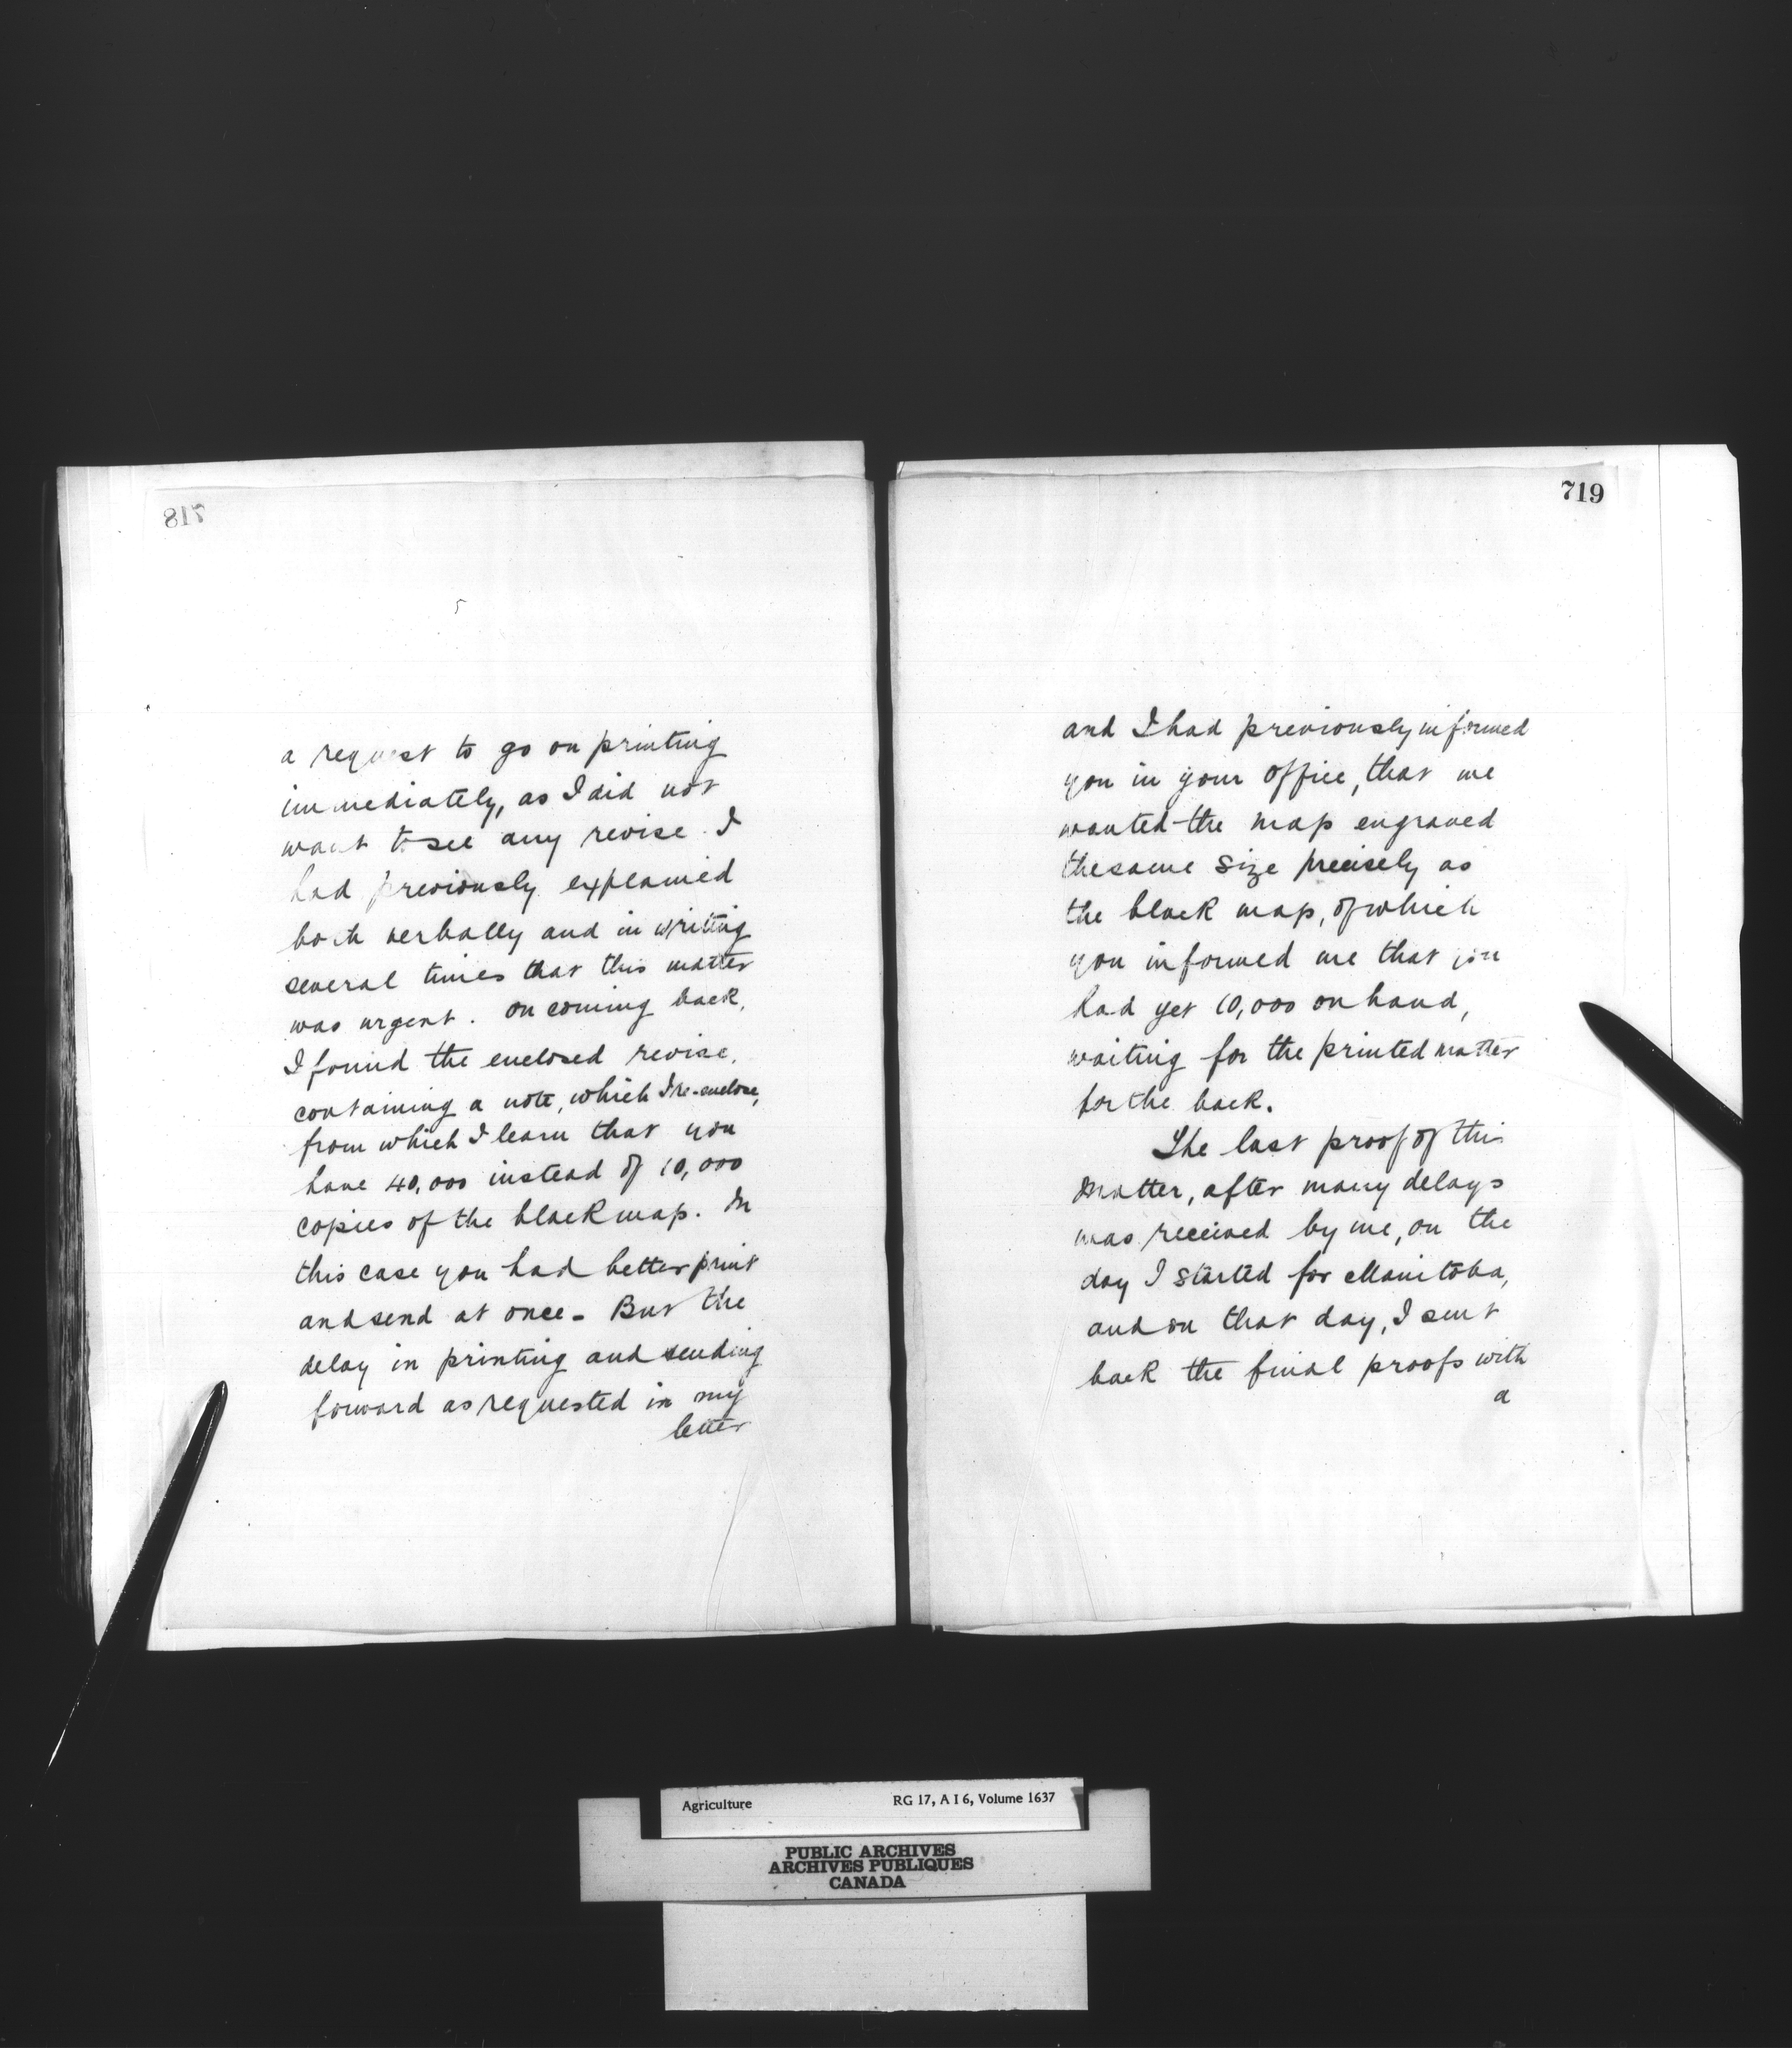 718
a request to go on printing
immediately, as I did not
want to see any revise. I
had previously explained
both verbally and in writing
several times that this matter
was urgent. On coming back,
I found the enclosed revise,
containing a note, which I re-enclose,
from which I learn that you
have 40,000 instead of 10,000
copies of the black map. In
this case you had better print
and send at once - But the
delay in printing and sending
forward as requested in my
letter
719
and I had previously informed
you in your office, that we
wanted the map engraved
the same size precisely as
the black map, of which
you informed me that you
had yet 10,000 on hand,
waiting for the printed matter
for the back.
The last proof of this
matter, after many delays
was received by me, on the
day I started for Manitoba,
and on that day, I sent
back the final proofs with
a
Agriculture RG 17, A I 6, Volume 1637
PUBLIC ARCHIVES
ARCHIVES PUBLIQUES
CANADA